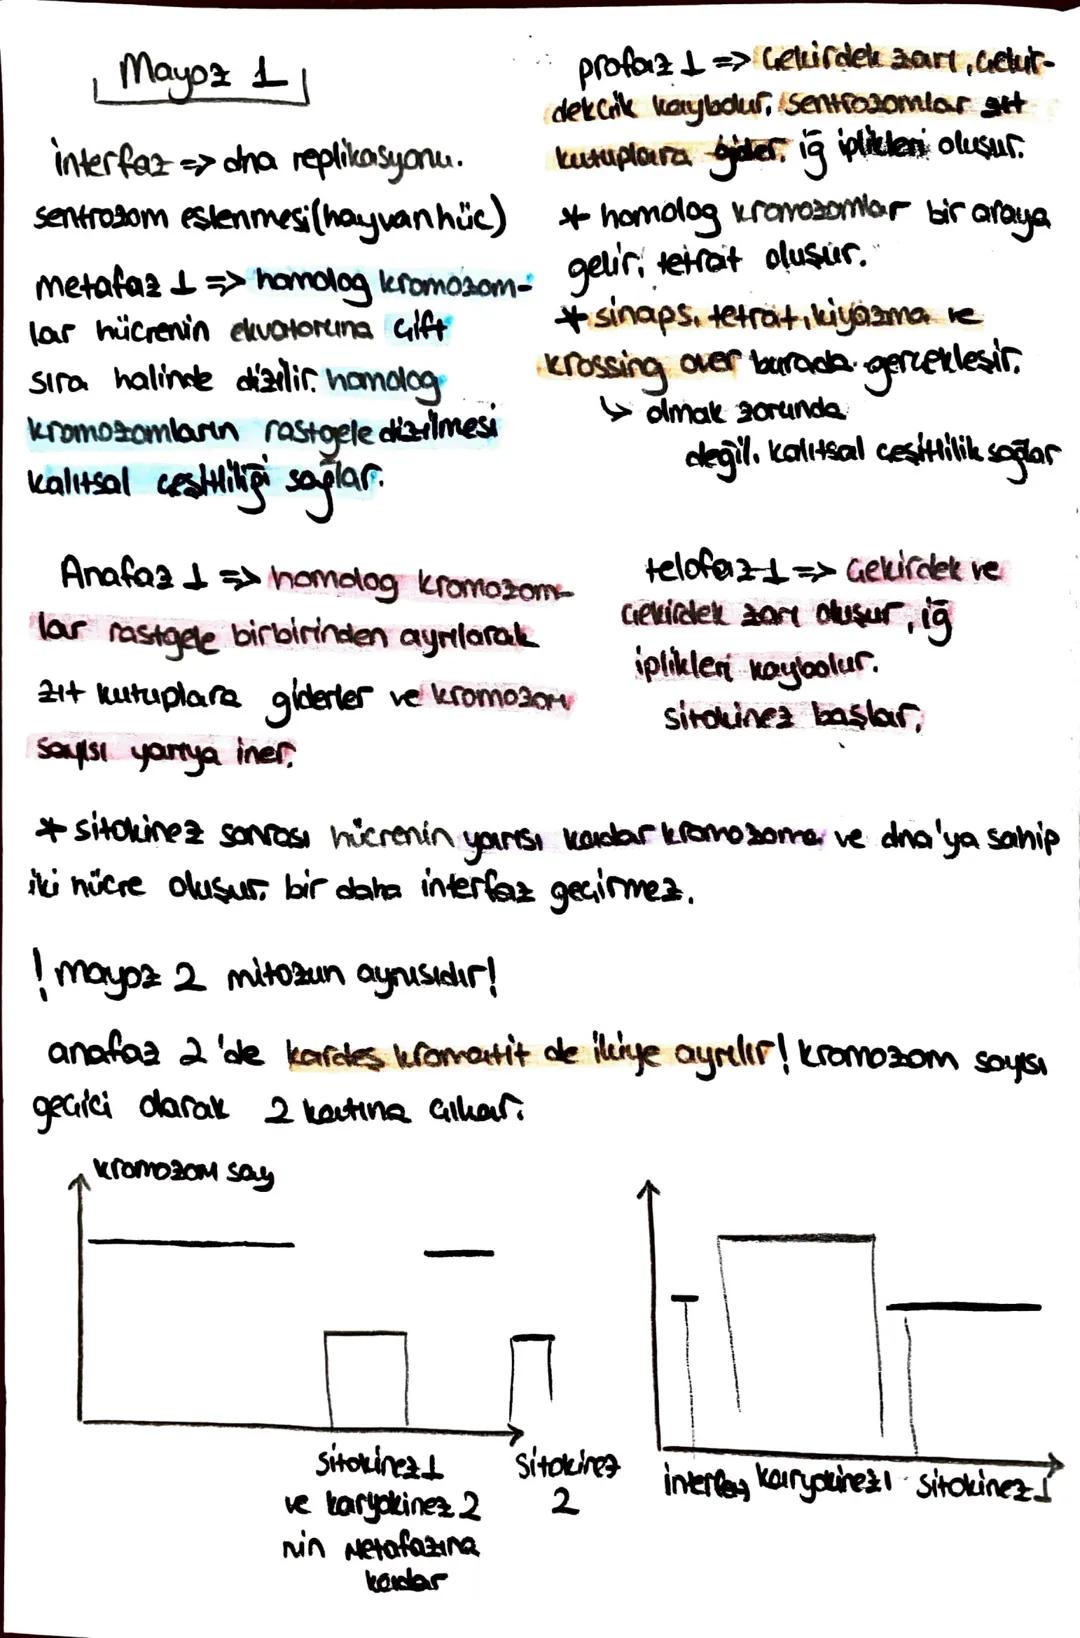 Mayoz 1
interfaz => dna replikasyonu.
sentrozom eşlenmesi (hayvan hüc)
metafaz 1 => homolog kromozom-
lar hücrenin ekvatoruna çift
sıra halinde dizilir. homolog
kromozomların rastgele dizilmesi
kalıtsal çeşitliliği sağlar.
profaz 1 => Çekirdek zarı, çekir-
dekcik kaybolur, sentrozomlar zıt
kutuplara gider. iğ iplikleri oluşur.
* homolog kromozomlar bir araya
gelir, tetrat oluşur.
* sinaps, tetrat, kiyazma ve
krossing over burada gerçekleşir.
↳ olmak zorunda
değil. kalıtsal çeşitlilik sağlar
Anafaz 1 => homolog kromozom-
lar rastgele birbirinden ayrılarak
zıt kutuplara giderler ve kromozom
sayısı yarıya iner.
telofaz 1 => Çekirdek ve
çekirdek zarı oluşur, iğ
iplikleri kaybolur.
sitokinez başlar.
* sitokinez sonrası hücrenin yarısı kadar kromozoma ve dna'ya sahip
iki hücre oluşur. bir daha interfaz geçirmez.
! mayoz 2 mitozun aynısıdır!
anafaz 2'de kardeş kromatit de ikiye ayrılır! kromozom sayısı
geçici olarak 2 katına çıkar.
kromozom say
sitokinez 1
ve karyokinez 2
nin metafazına
kadar
sitokinez
2
interfaz karyokinez 1 sitokinez 1